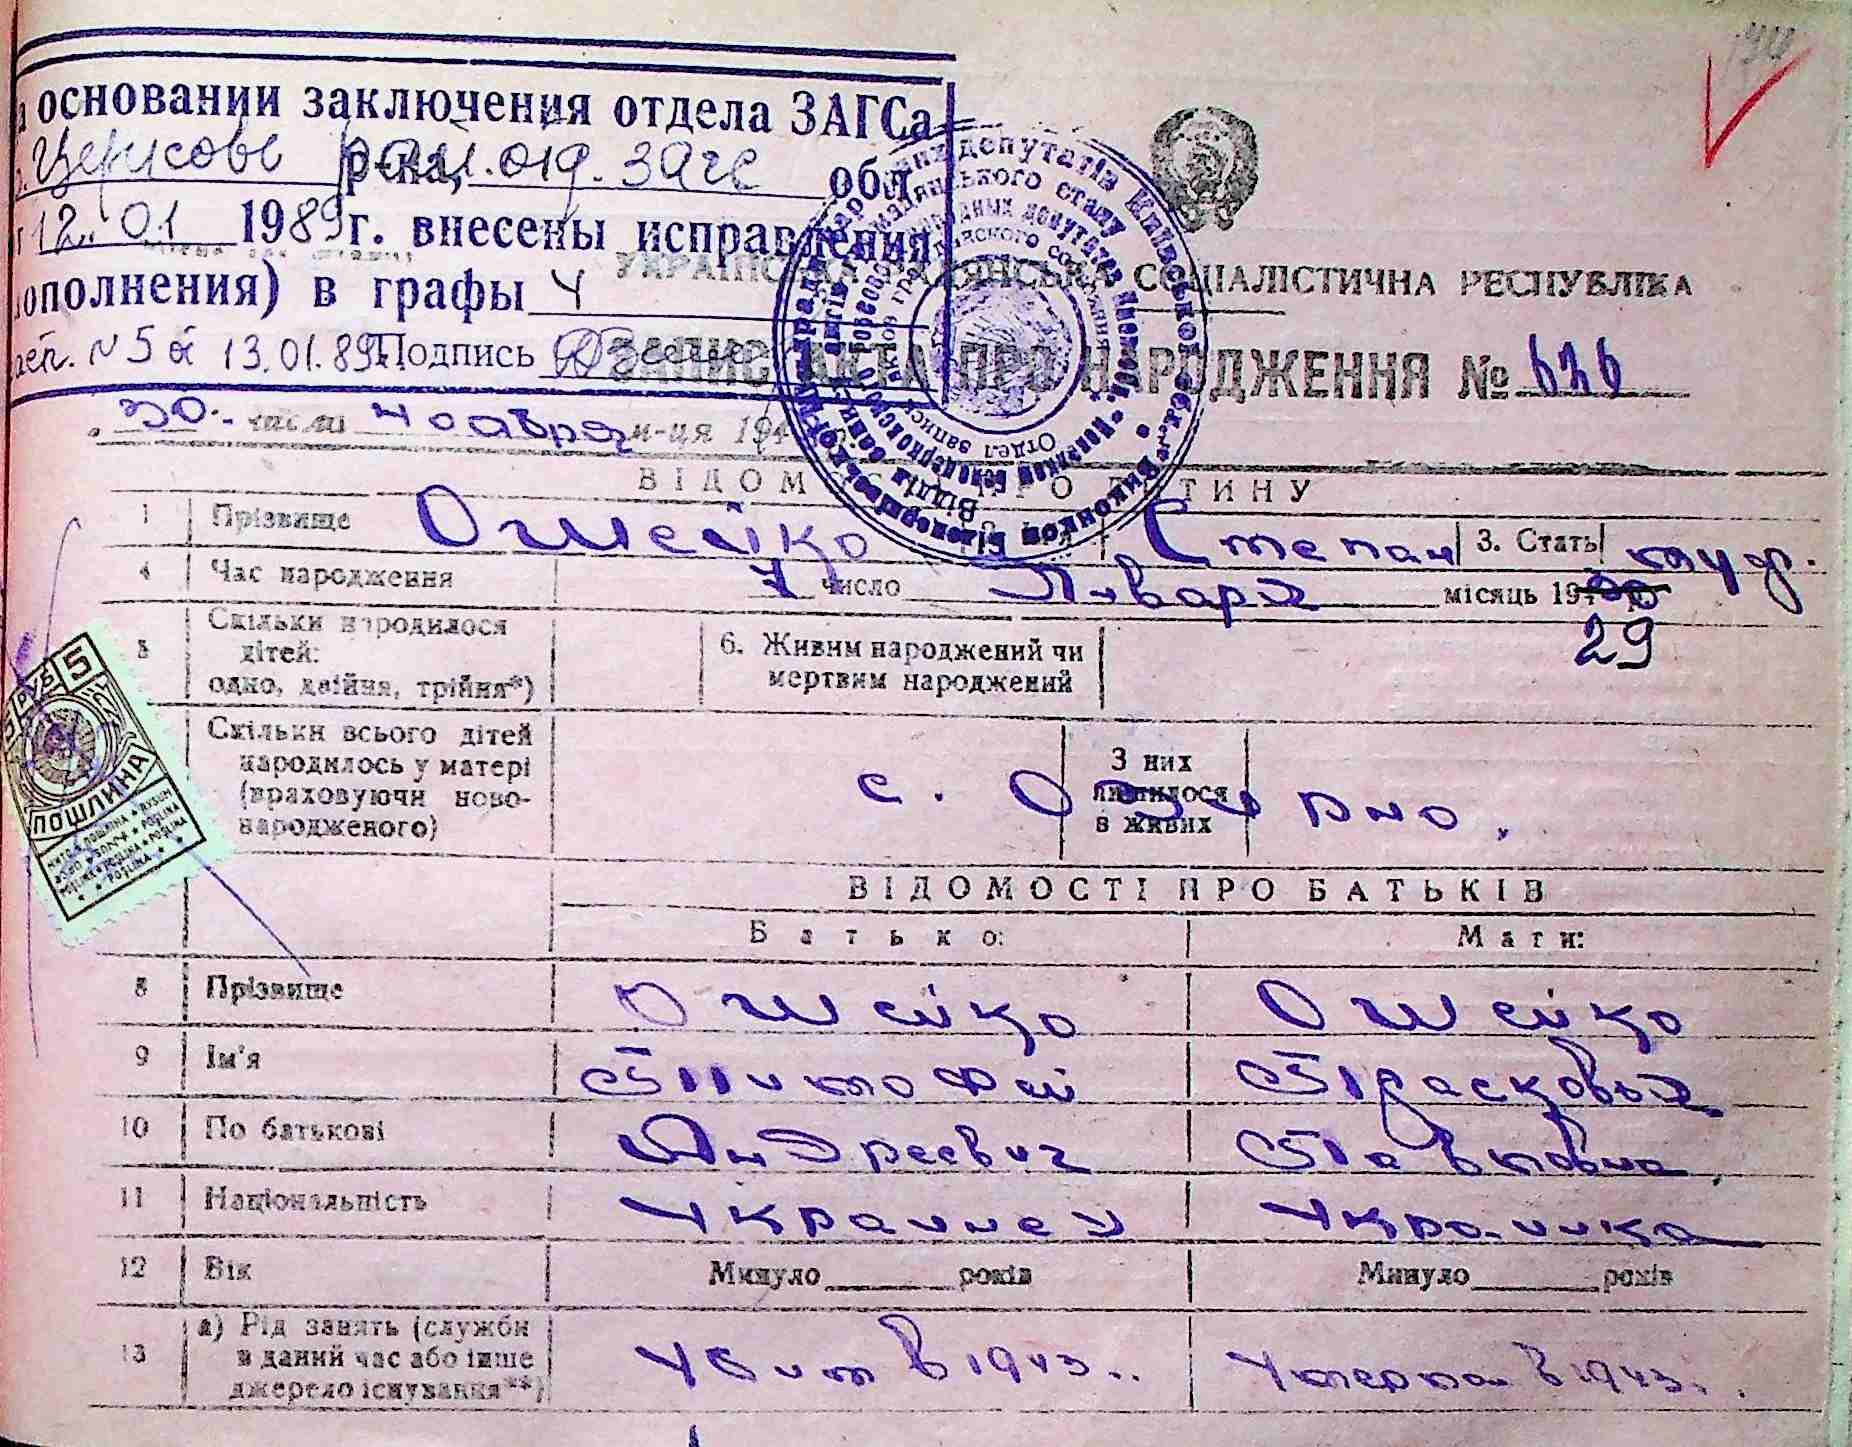 а основании заключения отдела ЗАГСа
р-на, рай.отд. ЗАГС обл.
12. 01 1989 г. внесены исправления
дополнения) в графы 4
N 5 от 13.01.89 Подпись
УКРАЇНСЬКА РАДЯНСЬКА СОЦІАЛІСТИЧНА РЕСПУБЛІКА
ЗАПИС АКТА ПРО НАРОДЖЕННЯ № 626
30. числа ноября м-ця 194
ВІДОМ ПРО ДИТИНУ
1 Прізвище Ошейко Степан 3. Стать муж.
4 Час народження 7 число Января місяць 19
29
5 Скільки народилося дітей: одно, двійня, трійня*) 6. Живим народжений чи мертвим народжений
Скільки всього дітей народилось у матері (враховуючи новонародженого) З них лишилося в живих
с. Озирно.
ВІДОМОСТІ ПРО БАТЬКІВ
Батько: Мати:
8 Прізвище Ошейко Ошейко
9 Ім'я Тимофей Прасковья
10 По батькові Андреевич Павловна
11 Національність Украинец Украинка
12 Вік Минуло років Минуло років
13 а) Рід занять (служби в даний час або інше джерело існування**) Убит в 1943.. Умерла в 1943..
СССР 5
ПОШЛИНА